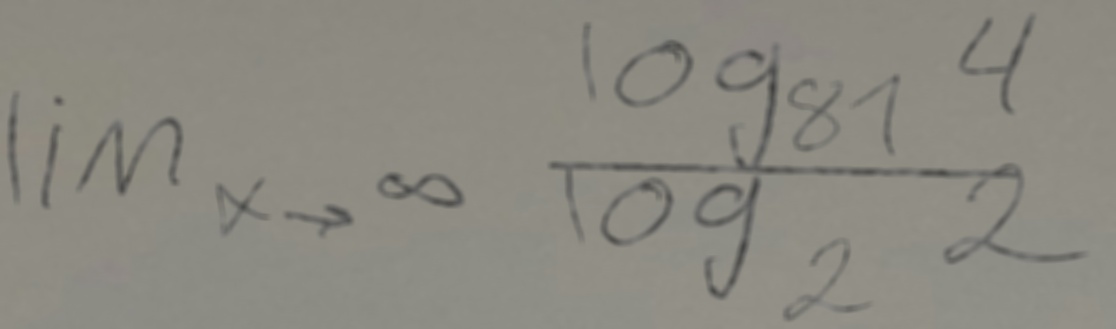 lim x→∞ log_81 4 / log_2 2